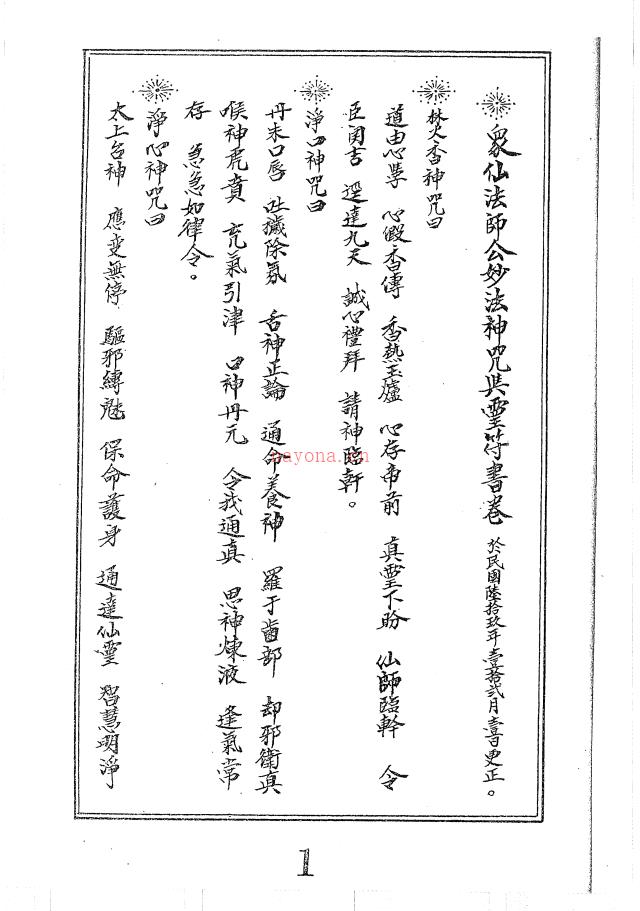 衆仙法師公妙法神咒與靈符書卷 於民國陸拾玖年壹拾貳月壹日更正。
焚香神咒曰
道由心學 心假香傳 香熱玉爐 心存帝前 真靈下盼 仙師臨幹 令
臣関告 逕達九天 誠心禮拜 請神臨軒。
淨口神咒曰
丹朱口唇 吐穢除氛 舌神正論 通命養神 羅于齒部 却邪衛真
喉神虎賁 充氣引津 口神丹元 令我通真 思神煉液 逢氣常
存 急急如律令。
淨心神咒曰
太上台神 應变無停 驅邪縛魅 保命護身 通達仙靈 智慧明淨
payona.cn
1